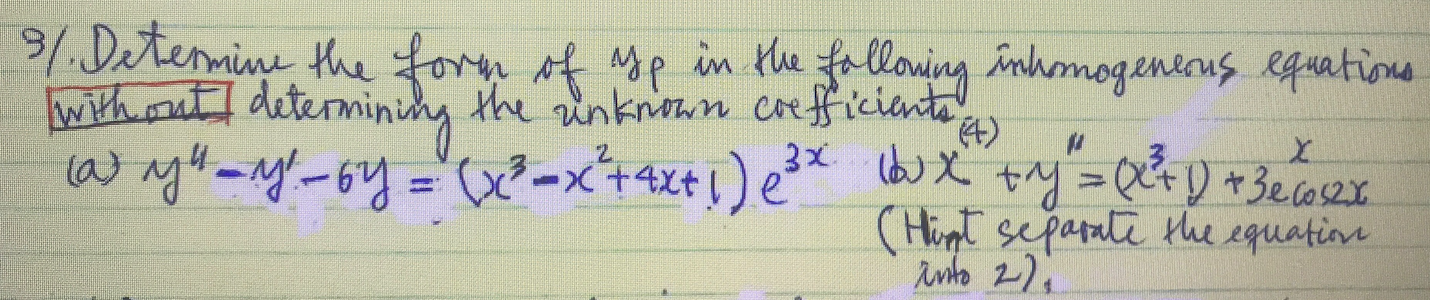 3/. Determine the form of yp in the following inhomogeneous equations
without determining the unknown coefficients.
(a) y'' - y' - 6y = (x³ - x² + 4x + 1) e³ˣ (b) x⁽⁴⁾ + y''' = (x³ + 1) + 3eˣ cos2x
(Hint separate the equation
into 2).